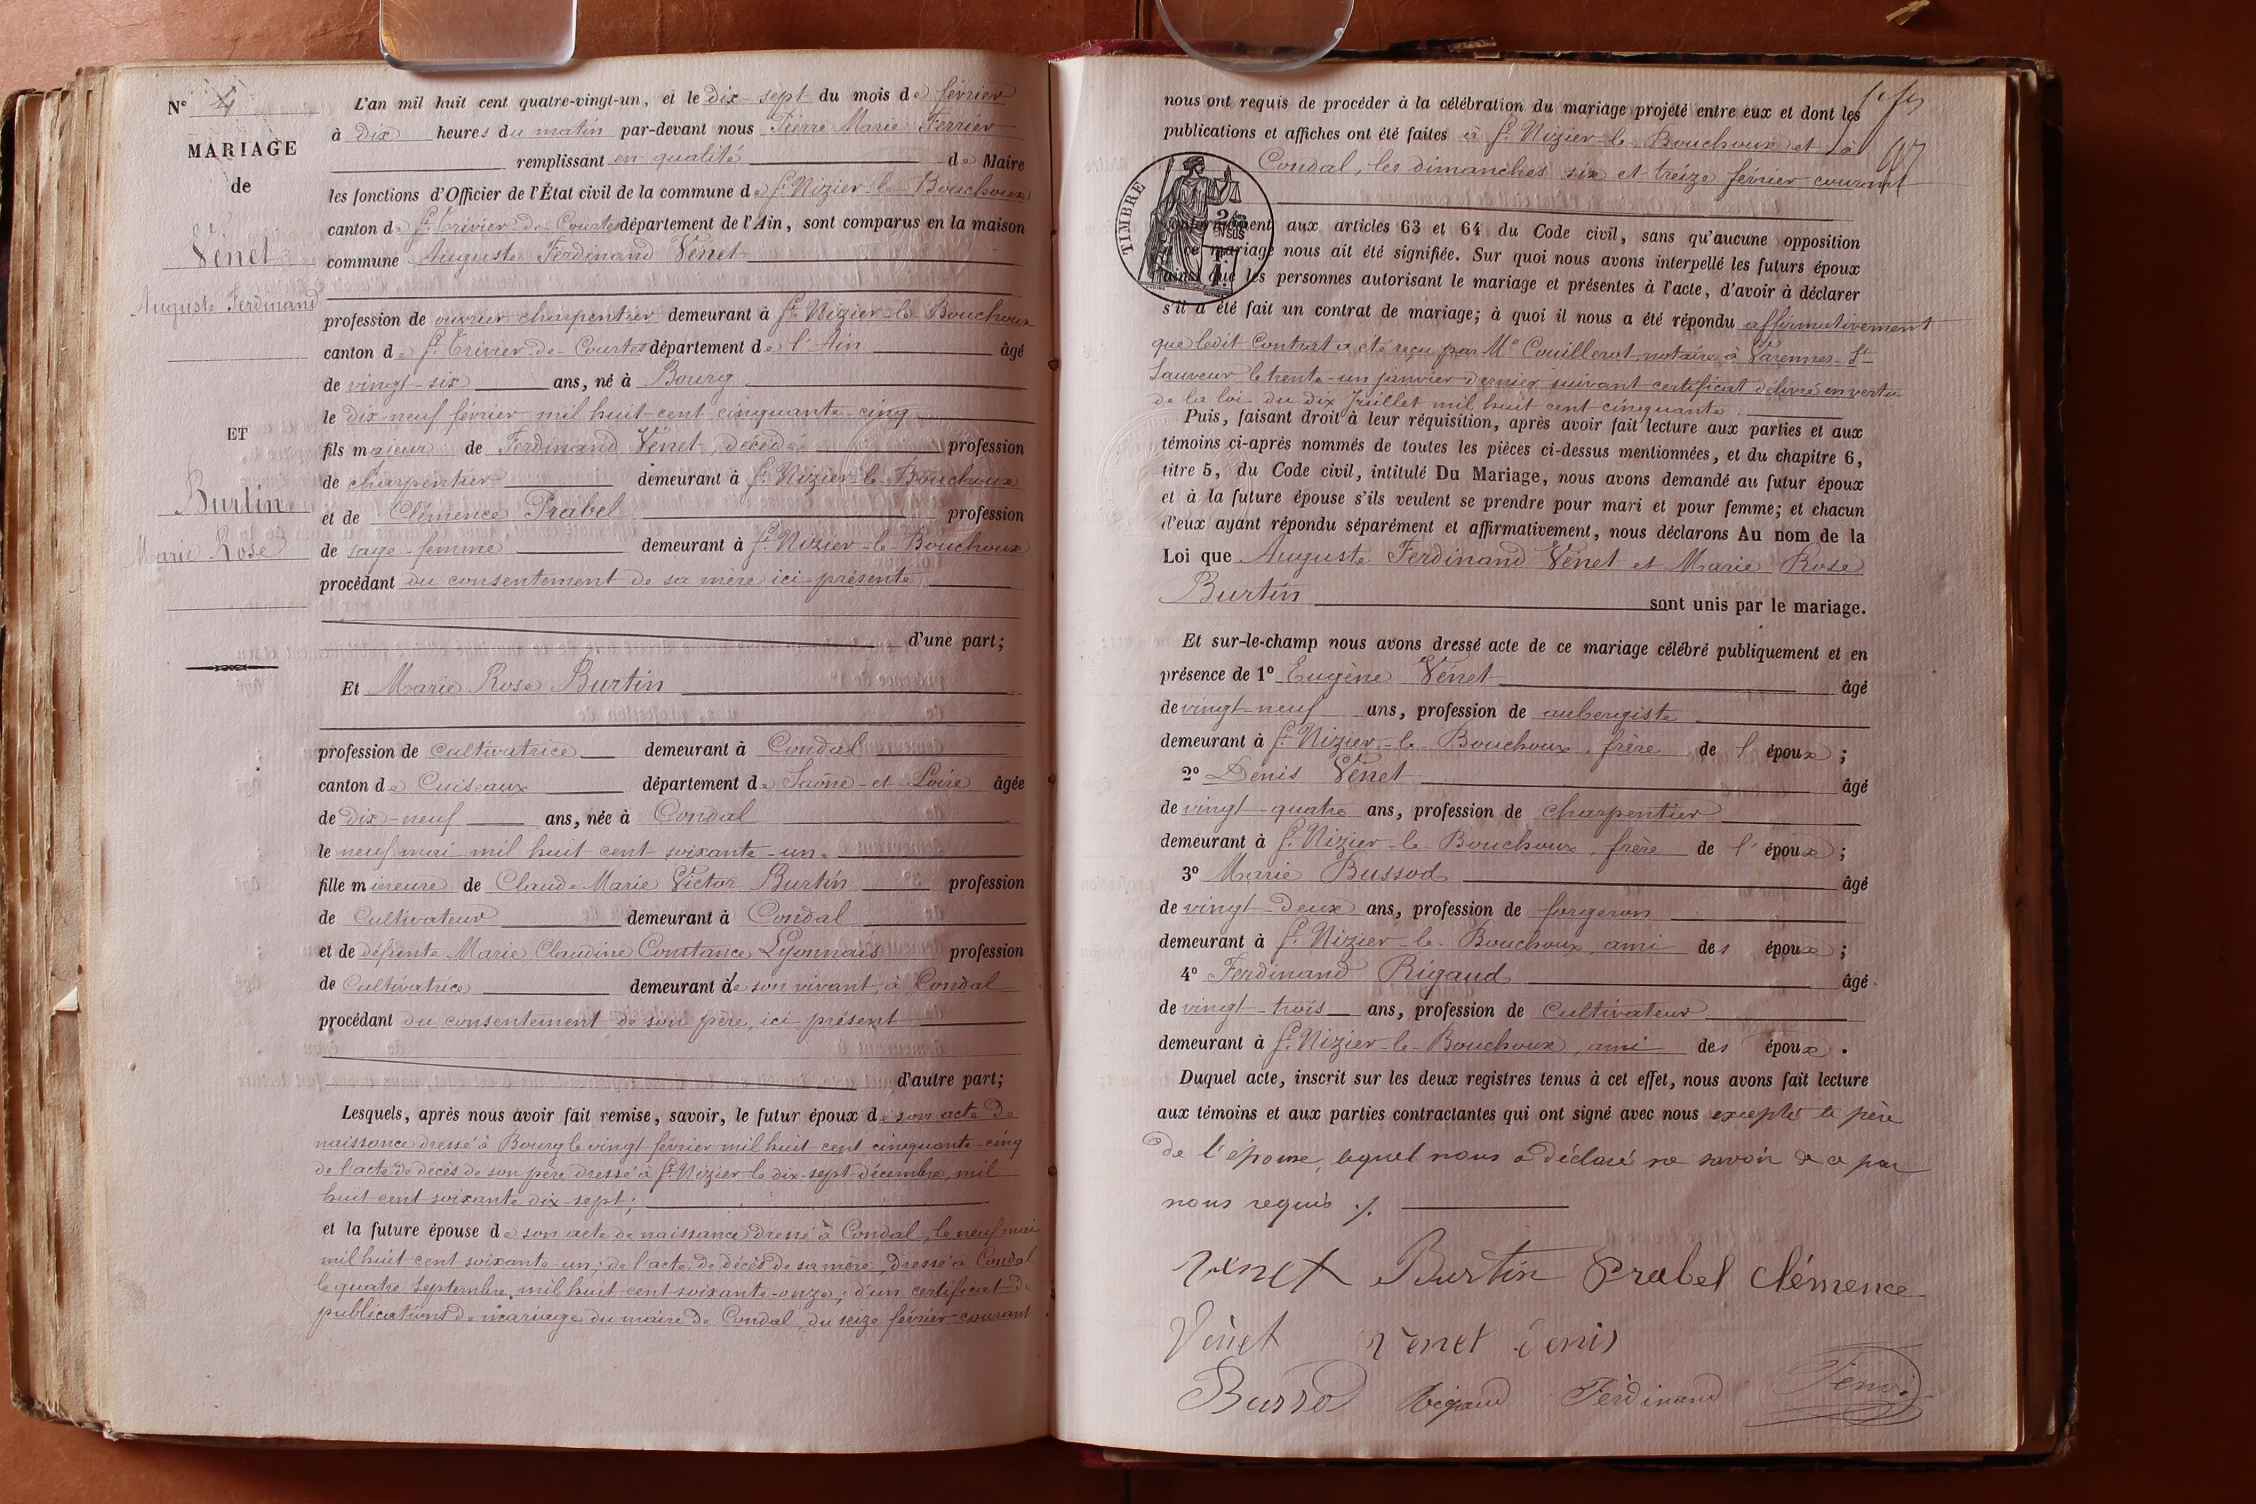 N° 4
MARIAGE
de
Vénet
Auguste Ferdinand
ET
Burtin
Marie Rose
L'an mil huit cent quatre-vingt-un, et le dix-sept du mois de février
à dix heures du matin par-devant nous Pierre Marie Ferrier
remplissant en qualité de Maire
les fonctions d'Officier de l'État civil de la commune de St Nizier-le-Bouchoux
canton de St Trivier-de-Courtes département de l'Ain, sont comparus en la maison
commune Auguste Ferdinand Vénet
profession de ouvrier charpentier demeurant à St Nizier-le-Bouchoux
canton de St Trivier-de-Courtes département de l'Ain âgé
de vingt-six ans, né à Bourg
le dix-neuf février mil huit-cent cinquante-cinq
fils majeur de Ferdinand Vénet, décédé profession
de charpentier demeurant à St Nizier-le-Bouchoux
et de Clémence Prabel profession
de sage-femme demeurant à St Nizier-le-Bouchoux
procédant du consentement de sa mère ici-présente
d'une part;
Et Marie Rose Burtin
profession de cultivatrice demeurant à Condal
canton de Cuiseaux département de Saône-et-Loire âgée
de dix-neuf ans, née à Condal
le neuf mai mil huit cent soixante-un
fille mineure de Claude Marie Victor Burtin profession
de Cultivateur demeurant à Condal
et de défunte Marie Claudine Constance Lyonnais profession
de Cultivatrice demeurant de son vivant, à Condal
procédant du consentement de son père, ici présent
d'autre part;
Lesquels, après nous avoir fait remise, savoir, le futur époux de son acte de
naissance dressé à Bourg le vingt février mil huit cent cinquante-cinq
de l'acte de décès de son père dressé à St Nizier le dix-sept décembre mil
huit cent soixante dix-sept;
et la future épouse de son acte de naissance dressé à Condal, le neuf mai
mil huit cent soixante-un; de l'acte de décès de sa mère, dressé à Condal
le quatre septembre mil huit cent soixante-onze; d'un certificat de
publications de mariage du maire de Condal, du seize février courant
nous ont requis de procéder à la célébration du mariage projeté entre eux et dont les
publications et affiches ont été faites à St Nizier-le-Bouchoux et à
Condal, les dimanches six et treize février courant
TIMBRE
conformément aux articles 63 et 64 du Code civil, sans qu'aucune opposition
à ce mariage nous ait été signifiée. Sur quoi nous avons interpellé les futurs époux
ainsi que les personnes autorisant le mariage et présentes à l'acte, d'avoir à déclarer
s'il a été fait un contrat de mariage; à quoi il nous a été répondu affirmativement
que ledit Contrat a été reçu par Me Couillerot notaire à Varennes-St
Sauveur le trente-un janvier dernier suivant certificat délivré en vertu
de la loi du dix Juillet mil huit cent cinquante.
Puis, faisant droit à leur réquisition, après avoir fait lecture aux parties et aux
témoins ci-après nommés de toutes les pièces ci-dessus mentionnées, et du chapitre 6,
titre 5, du Code civil, intitulé Du Mariage, nous avons demandé au futur époux
et à la future épouse s'ils veulent se prendre pour mari et pour femme; et chacun
d'eux ayant répondu séparément et affirmativement, nous déclarons Au nom de la
Loi que Auguste Ferdinand Vénet et Marie Rose
Burtin sont unis par le mariage.
Et sur-le-champ nous avons dressé acte de ce mariage célébré publiquement et en
présence de 1° Eugène Vénet âgé
de vingt-neuf ans, profession de aubergiste
demeurant à St Nizier-le-Bouchoux, frère de l'époux;
2° Denis Vénet âgé
de vingt-quatre ans, profession de charpentier
demeurant à St Nizier-le-Bouchoux, frère de l'époux;
3° Marie Bussod âgé
de vingt-deux ans, profession de forgeron
demeurant à St Nizier-le-Bouchoux, ami des époux;
4° Ferdinand Rigaud âgé
de vingt-trois ans, profession de Cultivateur
demeurant à St Nizier-le-Bouchoux, ami des époux.
Duquel acte, inscrit sur les deux registres tenus à cet effet, nous avons fait lecture
aux témoins et aux parties contractantes qui ont signé avec nous excepté le père
de l'épouse, lequel nous a déclaré ne savoir de ce par
nous requis ./.
Vénet Burtin Prabel Clémence
Vénet Vénet Denis
Bussod Rigaud Ferdinand